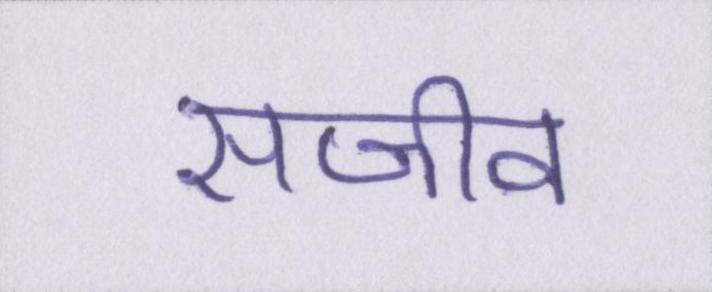 सजीव